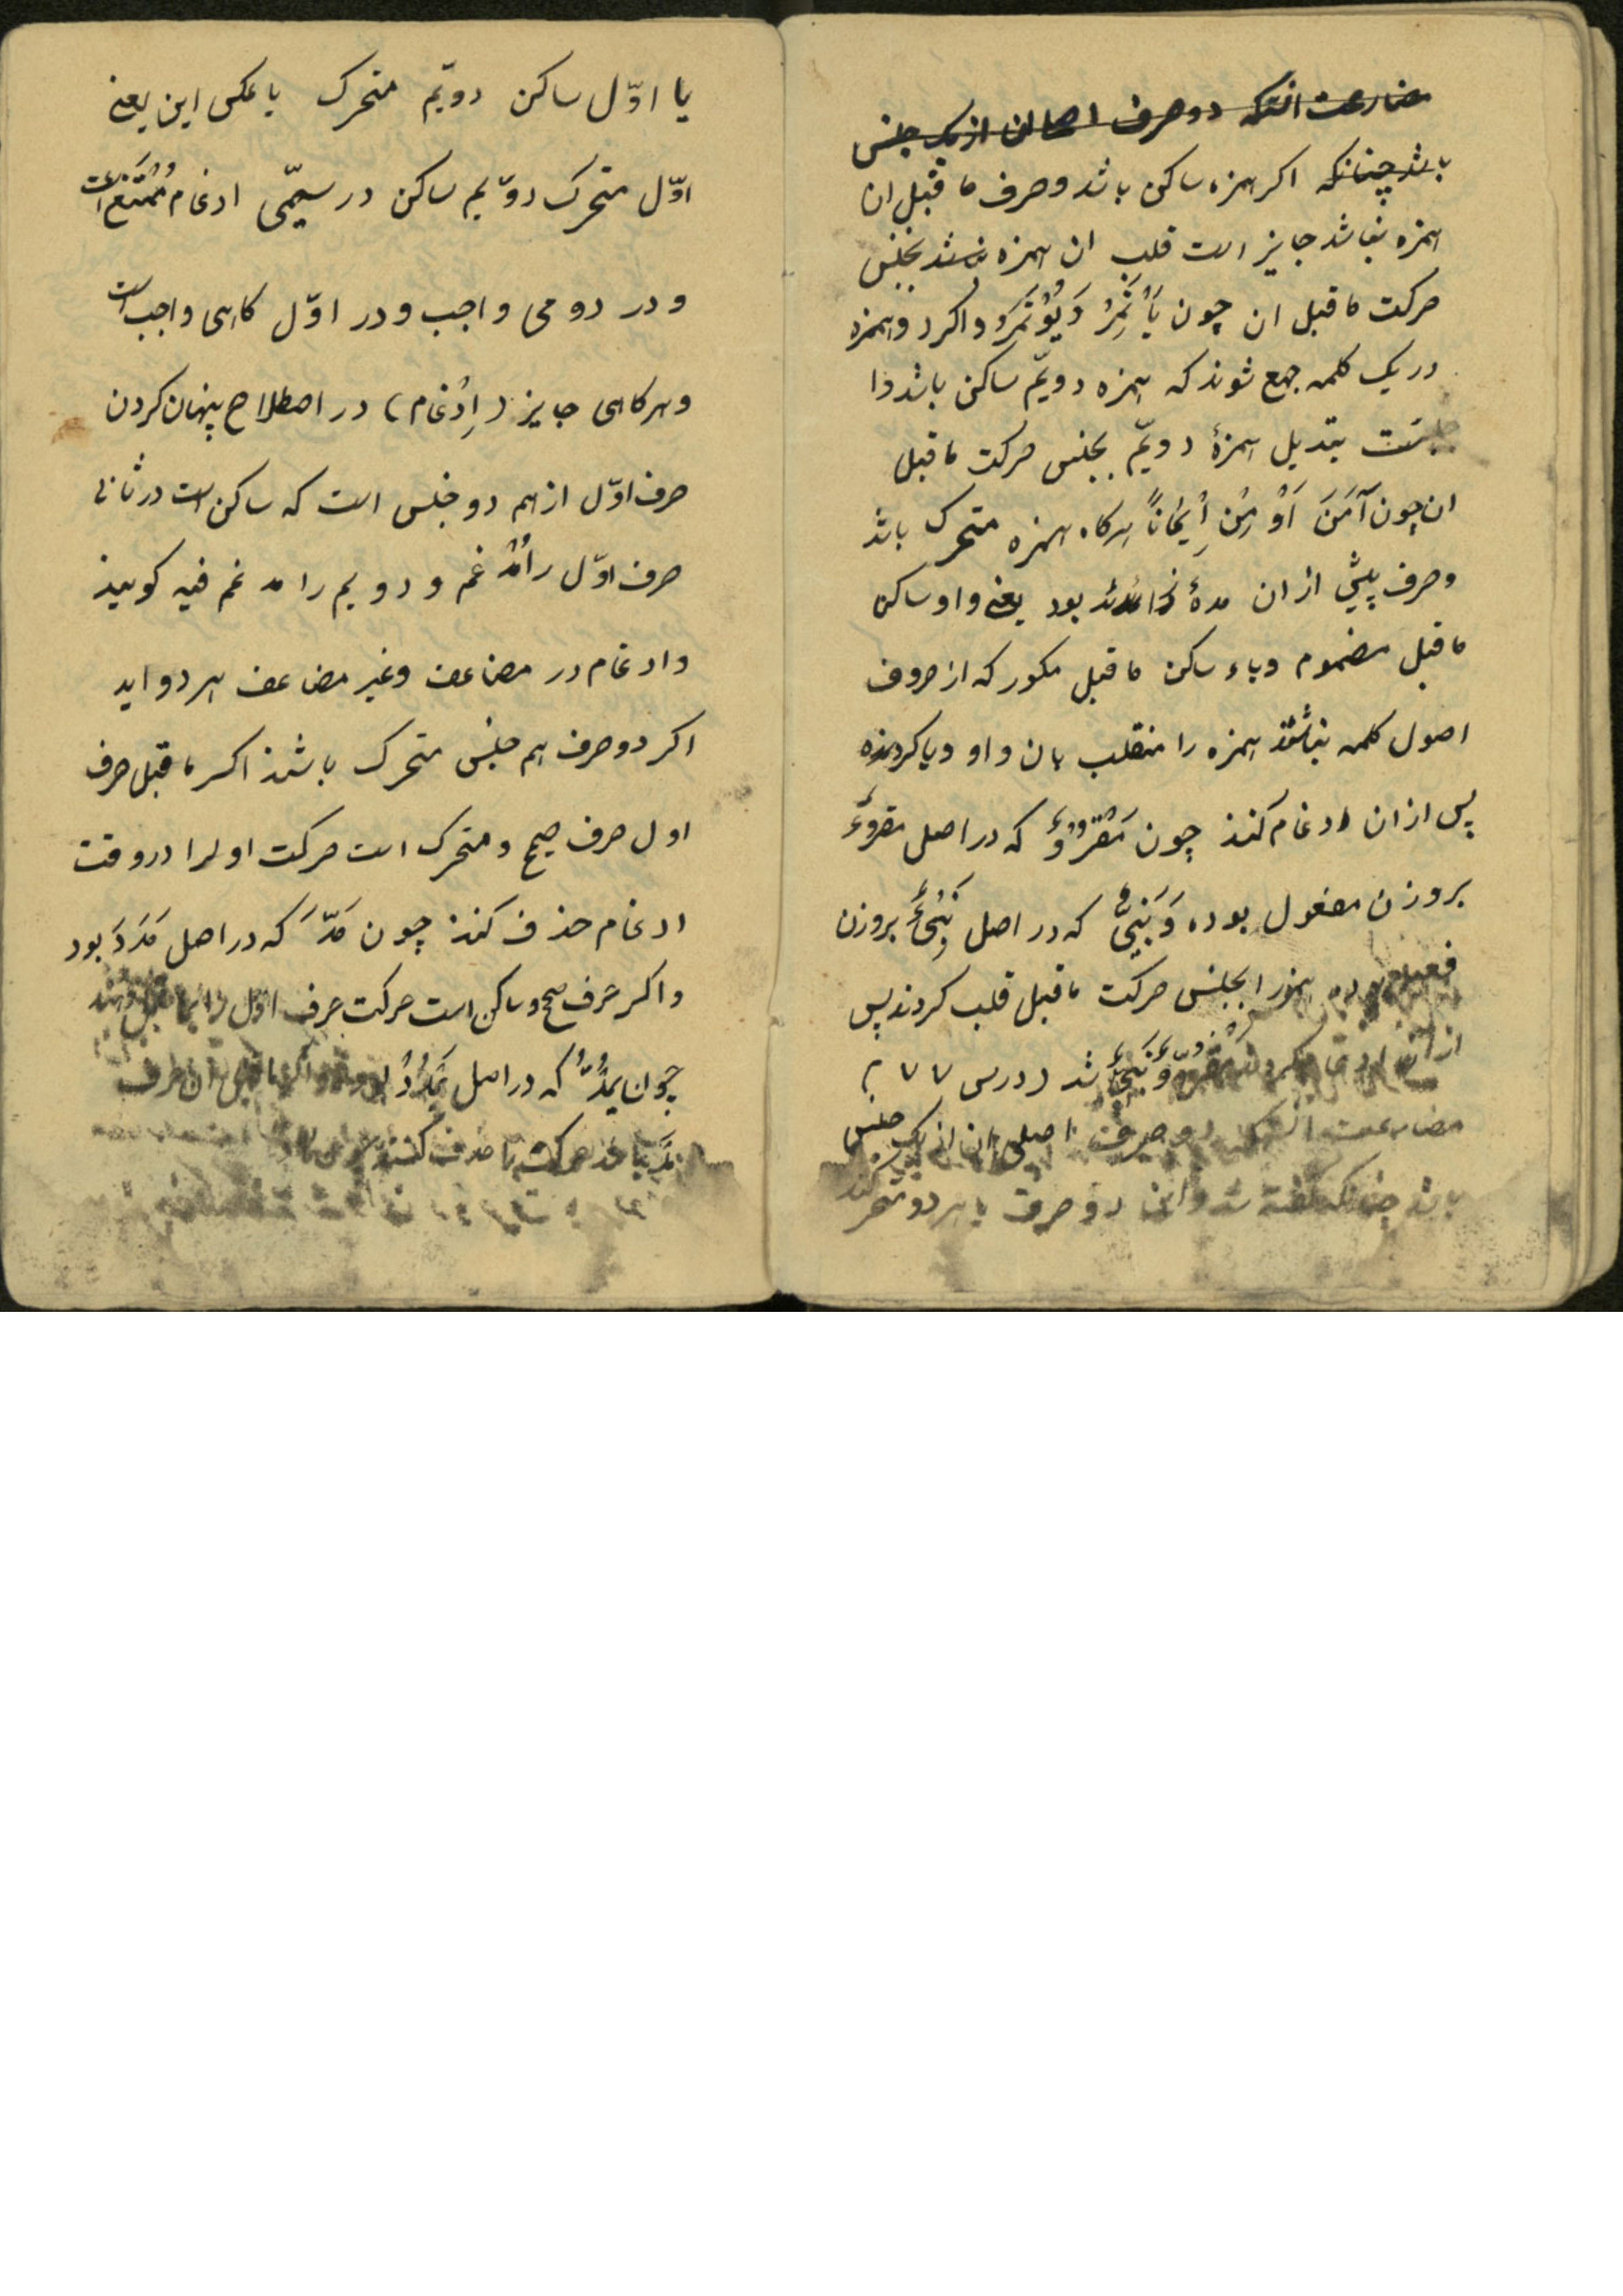 مضاعف انستکه دو حرف اصلی ان از یک جنس
باشد چنانکه اکر همزه ساکن باشد و حرف ما قبل ان
همزه نباشد جایز است قلب ان همزه بجنس
حرکت ما قبل ان چون یَأْتَمِرُ وَ یُؤْتَمَرُ و اکر دو همزه
در یک کلمه جمع شوند که همزه دویّم ساکن باشد وا
جبست تبدیل همزهٔ دویّم بجنس حرکت ماقبل
ان چون آمَنَ اُوْمِنَ اِیْمَاناً هرکاه همزه متحرک باشد
و حرف پیش از ان مدهٔ زائد بود یعنے واو ساکن
ما قبل مضموم و یاء ساکن ما قبل مکسور که از حروف
اصول کلمه نباشند همزه را منقلب بان واو و یا کرده
پس از ان ادغام کنند چون مَقْرُوٌّ که در اصل مقروءٌ
بروزن مفعول بوده وَ نَبِیٌّ که در اصل نَبِیْءٌ بروزن
فعیل بوده همزه را بجنس حرکت ما قبل قلب کردند پس
از ان ادغام کردند مقروّ وَ نَبِیّ شد ( درس ۷۷ )
مضاعف انستکه دو حرف اصلی ان از یک جنس
باشد چنانکه گفته شد و این دو حرف یا هر دو متحرکند
یا اوّل ساکن دویّم متحرک یا عکس این یعنے
اوّل متحرک دوّیم ساکن در سیّمی ادغام مُمْتَنِع است
و در دومی واجب و در اوّل کاهی واجب است
و هر کاهی جایز ( اِدْغام ) در اصطلاح پنهان کردن
حرف اوّل از هم دو جنس است که ساکن است در ثانی
حرف اوّل را مُدْغم و دویم را مدغم فیه کویند
و ادغام در مضاعف و غیر مضاعف هر دو اید
اکر دو حرف هم جنس متحرک باشند اکر ما قبل حرف
اول حرف صحیح و متحرک است حرکت اول را در وقت
ادغام حذف کنند چون مَدَّ که در اصل مَدَدَ بود
و اکر حرف صحیح و ساکن است حرکت حرف اوّل را بما قبل دهند
چون یَمُدُّ که در اصل یَمْدُدُ بود و اکر ما قبل ان حرف
مد باشد حرکت را حذف کنند